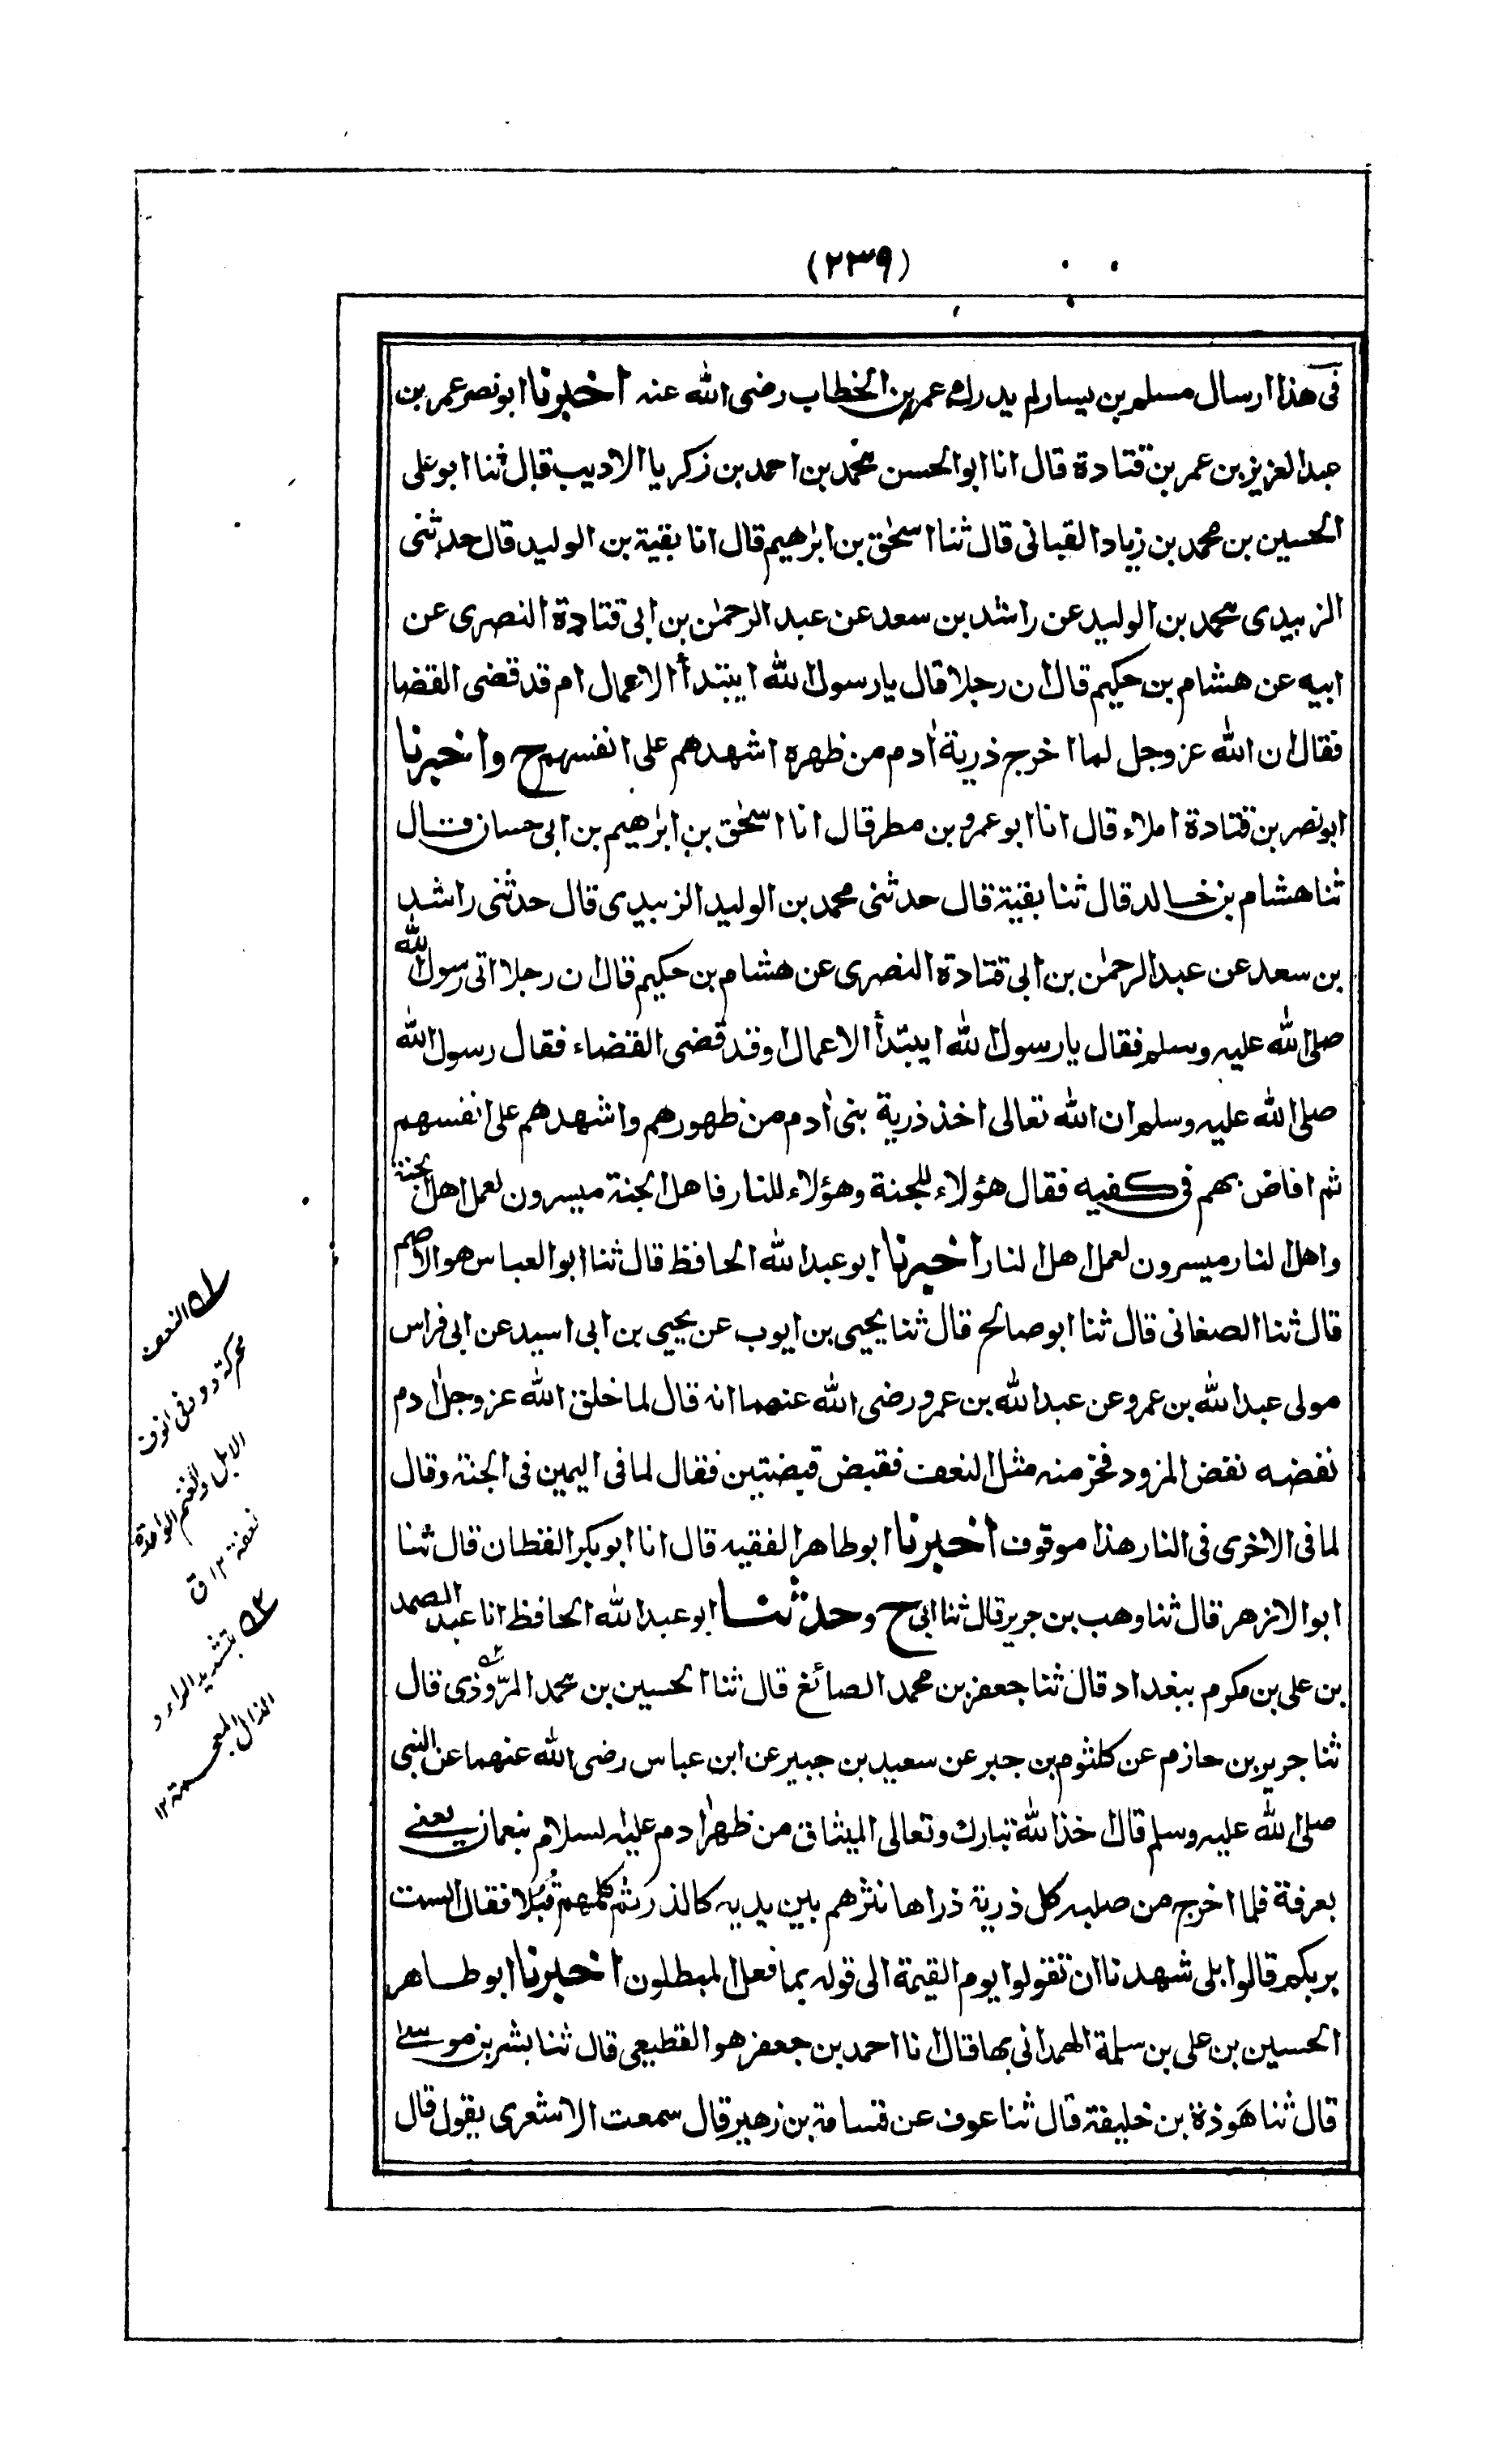 (٢٣٩)
فى هذا ارسال مسلم بن يسار لم يدرك عمر بن الخطاب رضى الله عنه اخبرنا ابو نصر عمر بن
عبد العزيز بن عمر بن قتادة قال انا ابو الحسن محمد بن احمد بن زكريا الاديب قال ثنا ابو على
الحسين بن محمد بن زياد القبانى قال ثنا اسحٰق بن ابرٰهيم قال انا بقية بن الوليد قال حدثنى
الزبيدى محمد بن الوليد عن راشد بن سعد عن عبد الرحمٰن بن ابى قتادة النصرى عن
ابيه عن هشام بن حكيم قال ان رجلا قال يا رسول الله ايبتدأ الاعمال ام قد قضى القضا
فقال ان الله عز وجل لما اخرج ذرية اٰدم من ظهره اشهدهم على انفسهم ح واخبرنا
ابو نصر بن قتادة املاء قال انا ابو عمرو بن مطر قال انا اسحٰق بن ابرٰهيم بن ابى حسان قال
ثنا هشام بن خالد قال ثنا بقية قال حدثنى محمد بن الوليد الزبيدى قال حدثنى راشد
بن سعد عن عبد الرحمٰن بن ابى قتادة النصرى عن هشام بن حكيم قال ان رجلا اتى رسول الله
صلى الله عليه وسلم فقال يا رسول الله ايبتدأ الاعمال او قد قضى القضاء فقال رسول الله
صلى الله عليه وسلم ان الله تعالى اخذ ذرية بنى اٰدم من ظهورهم واشهدهم على انفسهم
ثم افاض بهم فى كفيه فقال هؤلاء للجنة وهؤلاء للنار فاهل الجنة ميسرون لعمل اهل الجنة
واهل النار ميسرون لعمل اهل النار اخبرنا ابو عبد الله الحافظ قال ثنا ابو العباس هو الاصم
قال ثنا الصغانى قال ثنا ابو صالح قال ثنا يحيى بن ايوب عن يحيى بن ابى اسيد عن ابى فراس
مولى عبد الله بن عمرو عن عبد الله بن عمرو رضى الله عنهما انه قال لما خلق الله عز وجل اٰدم
نفضه نفض المزود فخر منه مثل النعف فقبض قبضتين فقال لما فى اليمين فى الجنة وقال
لما فى الاخرى فى النار هذا موقوف اخبرنا ابو طاهر الفقيه قال انا ابو بكر القطان قال ثنا
ابو الازهر قال ثنا وهب بن جرير قال ثنا ابى ح وحدثنا ابو عبد الله الحافظ انا عبد الصمد
بن على بن مكرم ببغداد قال ثنا جعفر بن محمد الصائغ قال ثنا الحسين بن محمد المرّوذى قال
ثنا جرير بن حازم عن كلثوم بن جبر عن سعيد بن جبير عن ابن عباس رضى الله عنهما عن النبى
صلى الله عليه وسلم قال اخذ الله تبارك وتعالى الميثاق من ظهر اٰدم عليه السلام بنعمان يعنى
بعرفة فلما اخرج من صلبه كل ذرية ذراها نثرهم بين يديه كالذر ثم كلمهم قُبُلا فقال الست
بربكم قالوا بلى شهدنا ان تقولوا يوم القيمة الى قوله بما فعل المبطلون اخبرنا ابو طاهر
الحسين بن على بن سلمة الهمدانى بها قال انا احمد بن جعفر هو القطيعى قال ثنا بشر بن موسى
قال ثنا هَوذة بن خليفة قال ثنا عوف عن قسامة بن زهير قال سمعت الاشعرى يقول قال
النعف
محركة دود فى انوف
الابل والغنم الواحدة
نعفة ١٢ ق
بتشديد الراء و
الذال المعجمة ١٢